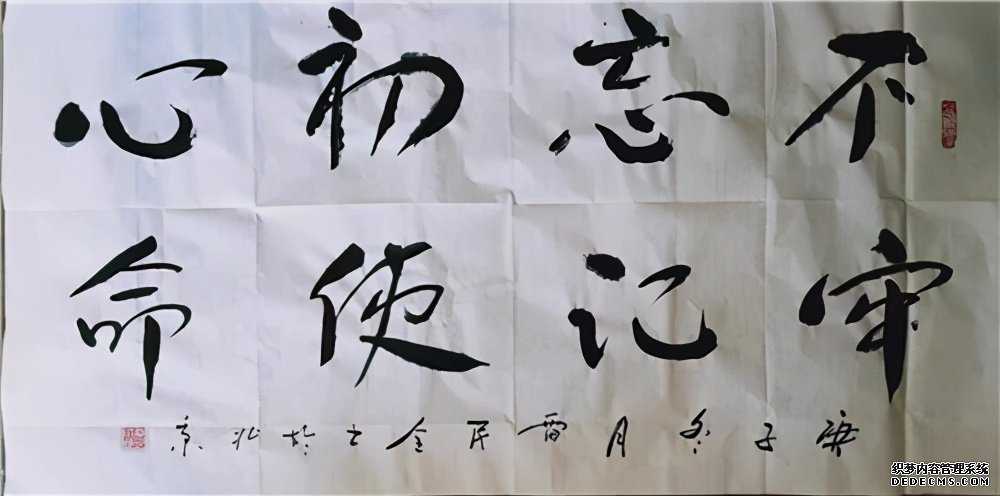 不忘初心
牢记使命
庚子冬月雷民全书于北京
织梦内容管理系统
DEDECMS.COM